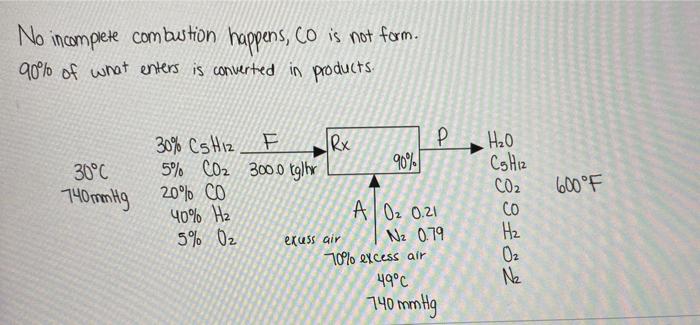 No incomplete combustion happens, CO is not form.
90% of what enters is converted in products.
30°C
740mmHg
30% C5H12
5% CO2
20% CO
40% H2
5% O2
F
300.0 kg/hr
Rx
90%
P
H2O
C5H12
CO2
CO
H2
O2
N2
600°F
A
O2 0.21
N2 0.79
excess air
70% excess air
49°C
740 mmHg